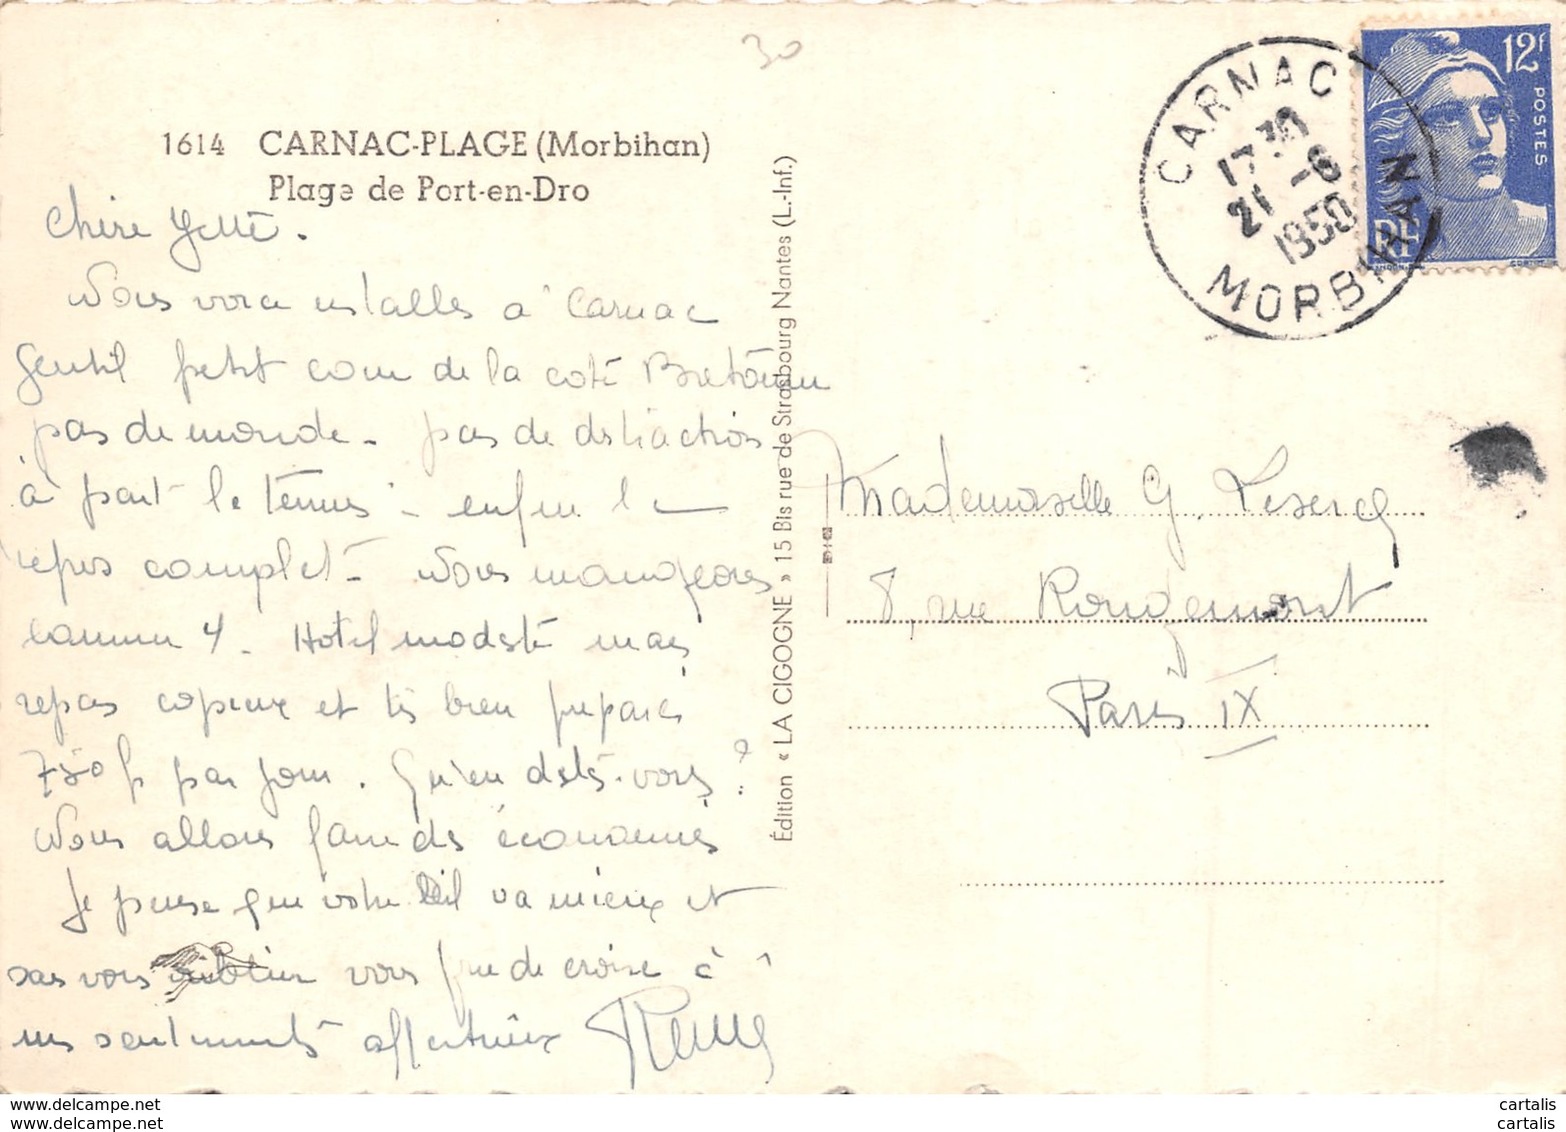 30
1614 CARNAC-PLAGE (Morbihan)
Plage de Port-en-Dro
Chère Yette.
Nous voici installés à Carnac
Gentil petit coin de la coté Bretonne
pas de monde - pas de distractions
à part le tennis - enfin le
repos complet - Nous mangeons
comme 4 - Hotel modeste mais
repas copieux et très bien préparés
750 f par jour. Qu'en dites-vous ?
Nous allons faire des économies
Je pense que votre œil va mieux et
sans vous oublier vous prie de croire à
mes sentiments affectueux
Édition « LA CIGOGNE » 15 Bis rue de Strasbourg Nantes (L.-Inf.)
CARNAC
17 30
21 -6
1950
MORBIHAN
12f
POSTES
RF
Mademoiselle G.
8, rue Rougemont
Paris IX
cartalis
www.delcampe.net
cartalis
cartalis